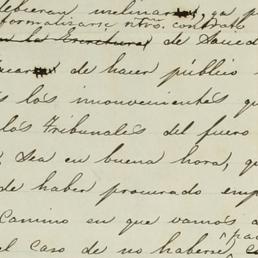 debieran
formalizarse ntro. contrato
en la Escritura de Socied
de hacer público
los inconvenientes q
los Tribunales del fuero
sea en buena hora, q
de haber procurado emp
camino en que vamos a
el caso de no haberse